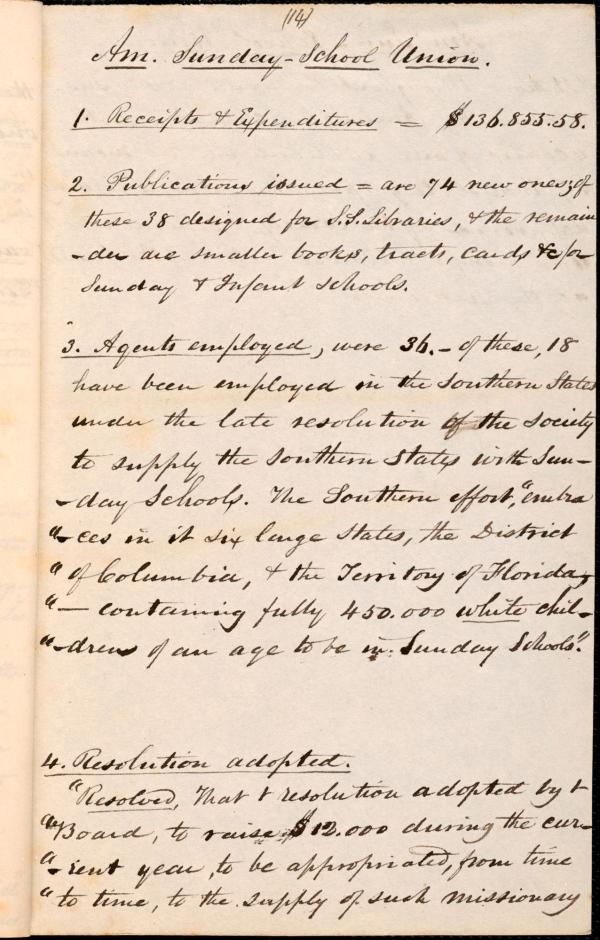 (14)
Am. Sunday-School Union.
1. Receipts & Expenditures = $136.855.58.
2. Publications issued = are 74 new ones; of
these 38 designed for S.S. Libraries, & the remain
-der are smaller books, tracts, cards &c for
Sunday & Infant schools.
3. Agents employed, were 36. - of these, 18
have been employed in the Southern States
under the late resolution of the Society
to supply the Southern States with Sun-
-day Schools. The Southern effort, "embra
"-ces in it six large States, the District
" of Columbia, & the Territory of Florida,
"— containing fully 450.000 white chil-
"-dren of an age to be in Sunday Schools".
4. Resolution adopted.
"Resolved, That t resolution adopted by t
"Board, to raise $12.000 during the cur-
"-rent year, to be appropriated, from time
" to time, to the supply of such missionary